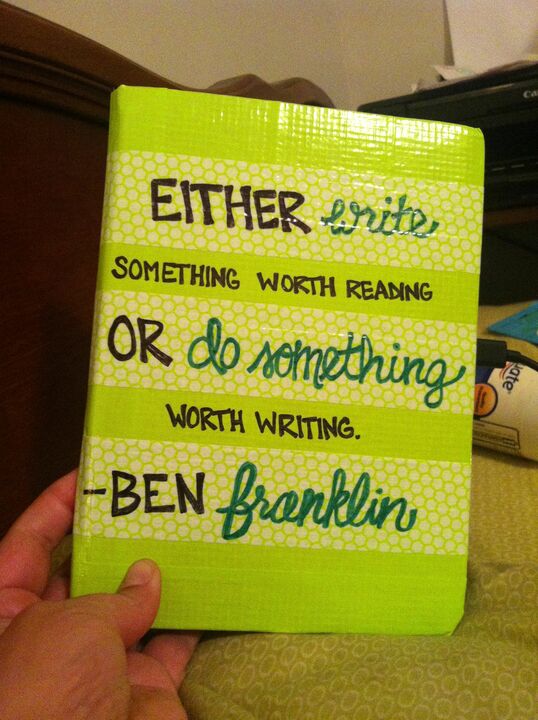 EITHER write
SOMETHING WORTH READING
OR do something
WORTH WRITING.
-BEN franklin
Ca
gate